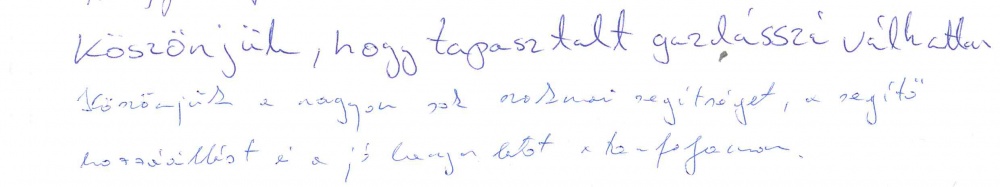 Köszönjük, hogy tapasztalt gazdásszá válhattam
Köszönjük a nagyon sok szakmai segítséget, a segítő
hozzáállást és a jó hangulatot a tanfolyamon.